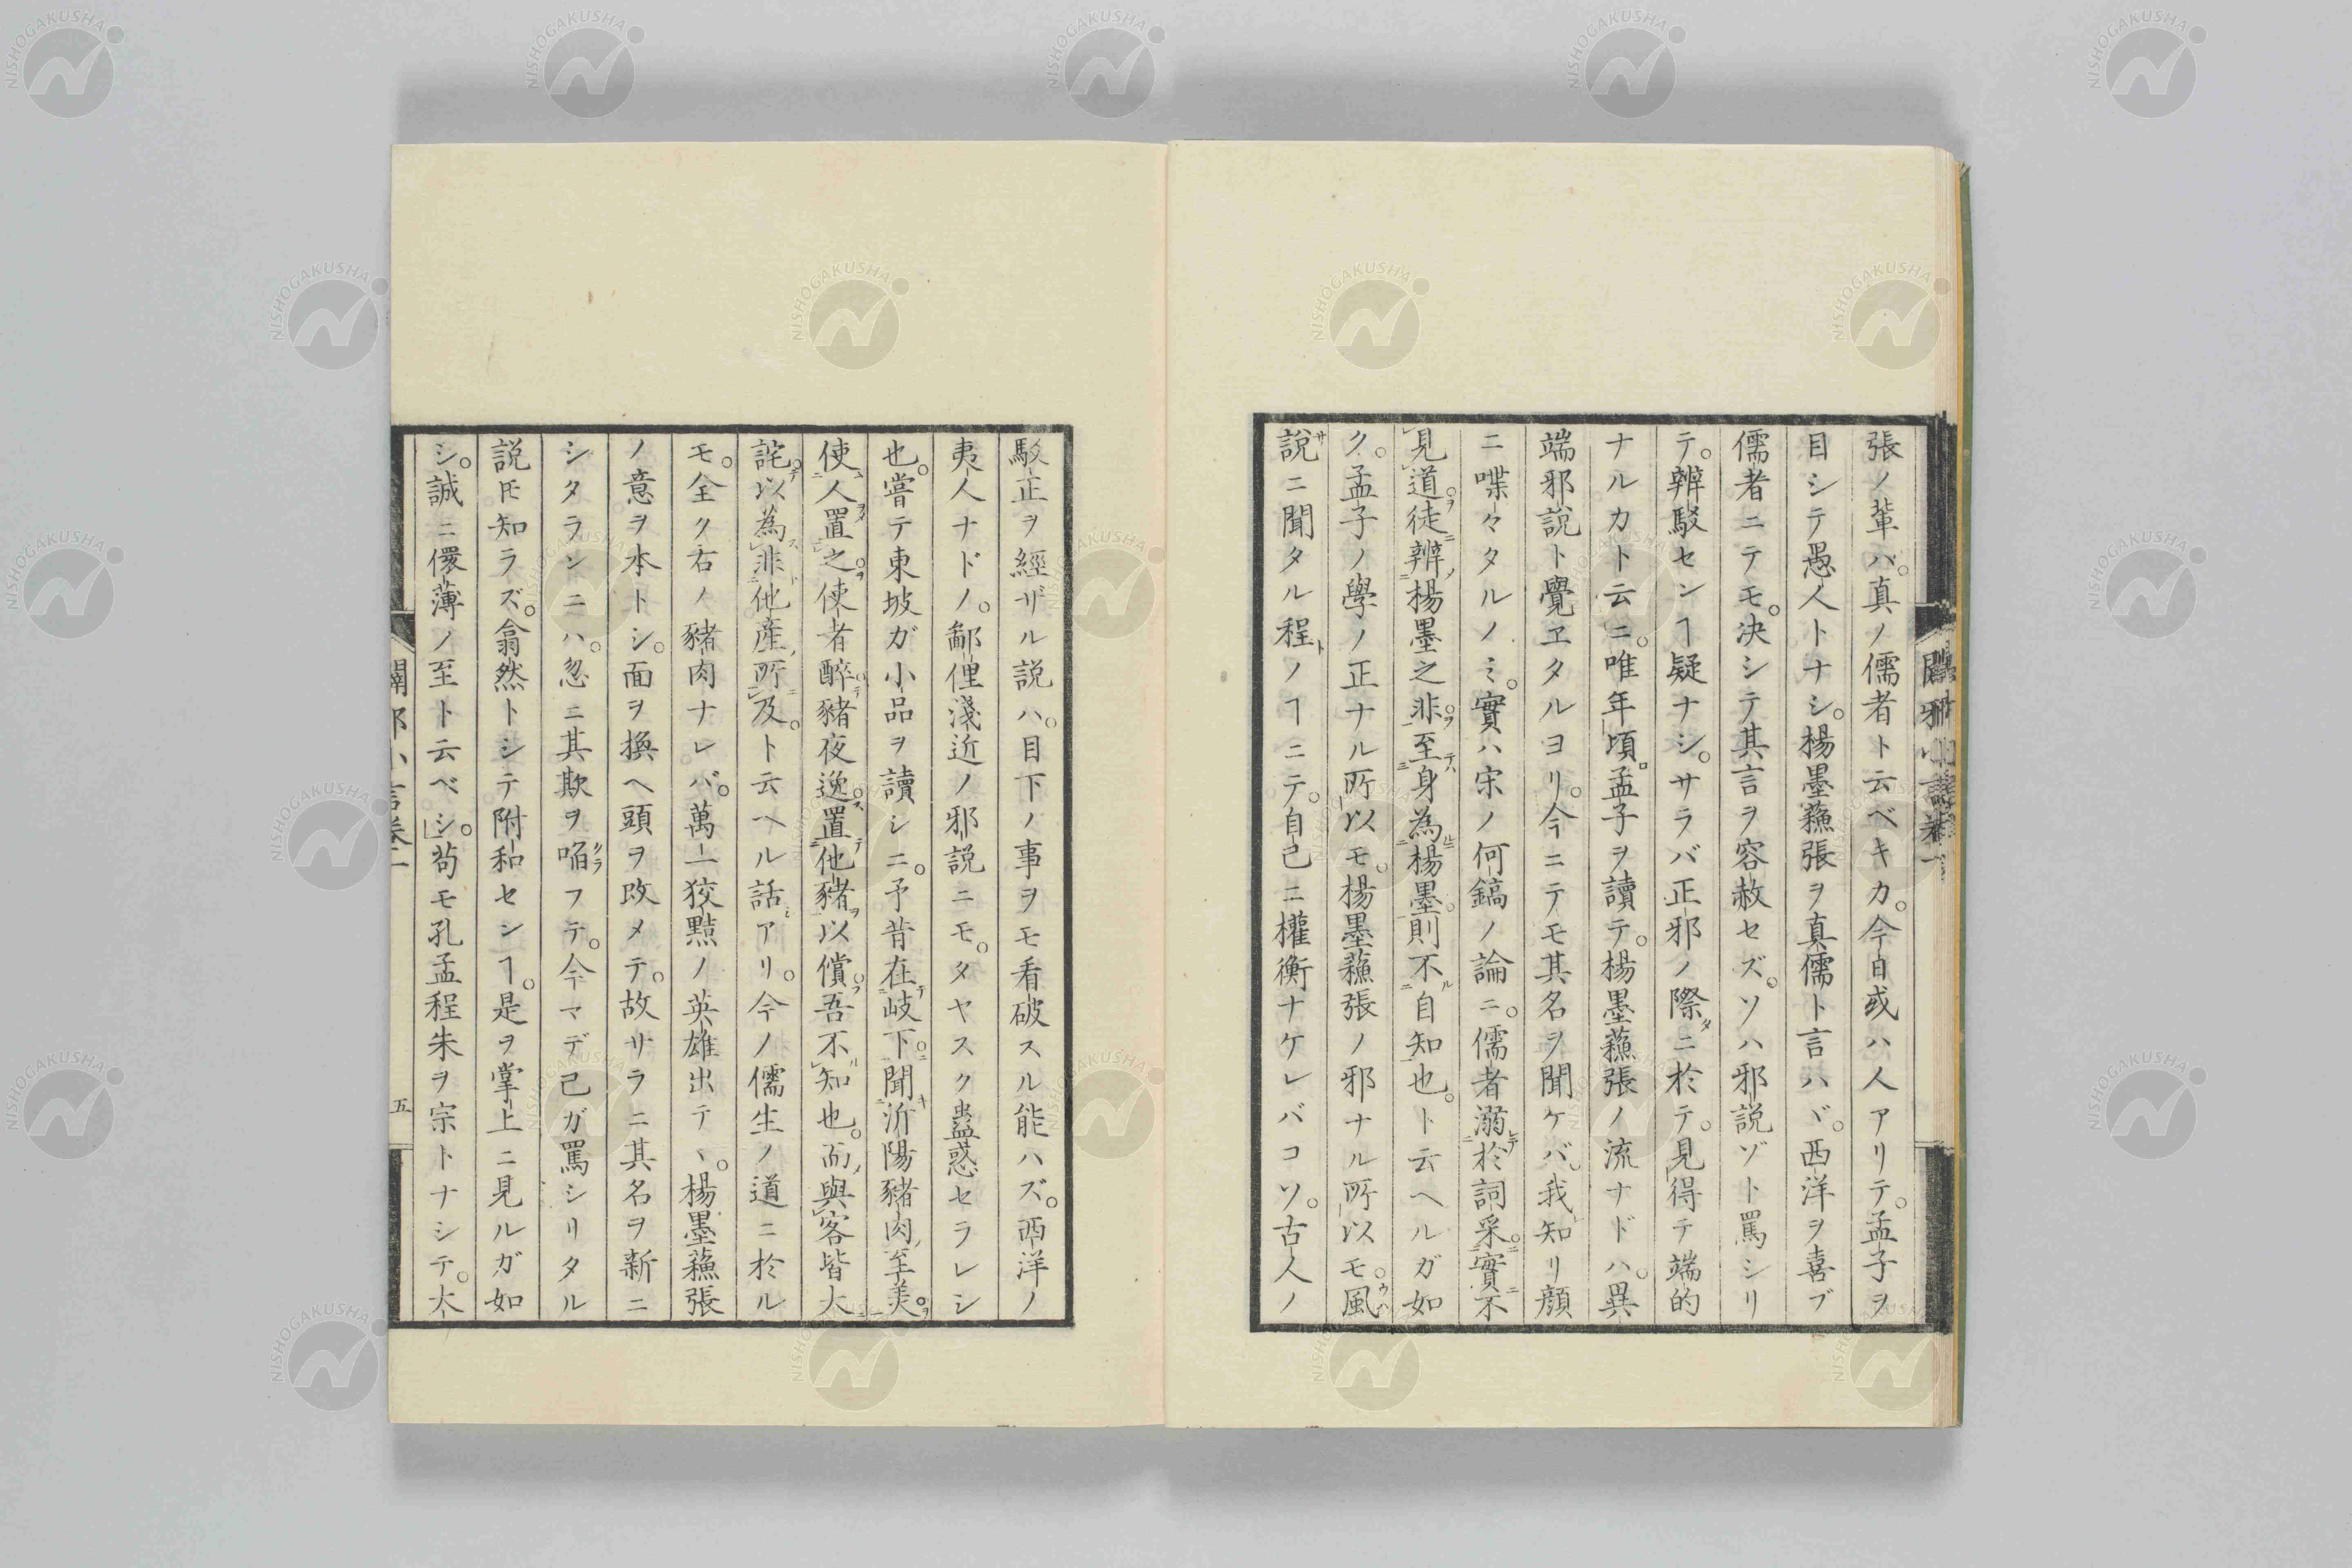 張ノ輩バ。真ノ儒者ト云ベキカ。今自或ハ人アリテ。孟子ヲ
目シテ愚人トナシ。楊墨蘓張ヲ真儒ト言ハヾ。西洋ヲ喜ブ
儒者ニテモ。决シテ其言ヲ容赦セズ。ソハ邪説ゾト罵シリ
テ。辨駁センヿ疑ナシ。サラバ正邪ノ際ニ於テ。見得テ端的
ナルカト云ニ。唯年頃孟子ヲ讀テ。楊墨蘓張ノ流ナドハ。異
端邪説ト覺エタルヨリ。今ニテモ其名ヲ聞ケバ。我知リ顔
ニ喋々タルノミ。實ハ宋ノ何鎬ノ論ニ。儒者溺於詞采實不
見道。徒辨楊墨之非。至身為楊墨。則不自知也。ト云ヘルガ如
ク。孟子ノ學ノ正ナル所以モ。楊墨蘓張ノ邪ナル所以モ。風
説ニ聞タル程ノヿニテ。自己ニ權衡ナケレバコソ。古人ノ
駁正ヲ經ザル説ハ。目下ノ事ヲモ看破スル能ハズ。西洋ノ
夷人ナドノ。鄙俚淺近ノ邪説ニモ。タヤスク蠱惑セラレシ
也。嘗テ東坡ガ小品ヲ讀シニ。予昔在岐下。聞沂陽豬肉至美。
使人置之。使者醉。豬夜逸。置他豬以償。吾不知也。而與客皆大
詫。以為非他産所及。ト云ヘル話アリ。今ノ儒生ノ道ニ於ル
モ。全ク右ノ豬肉ナレバ。萬一狡黠ノ英雄出テヽ。楊墨蘓張
ノ意ヲ本トシ。面ヲ換ヘ頭ヲ改メテ。故サラニ其名ヲ新ニ
シタランニハ。忽ニ其欺ヲ啗フテ。今マデ己ガ罵シリタル
説𪜈知ラズ。翕然トシテ附和セシヿ。是ヲ掌上ニ見ルガ如
シ。誠ニ儇薄ノ至ト云ベシ。苟モ孔孟程朱ヲ宗トナシテ。大
闢邪小言卷一
五
NISHOGAKUSHA